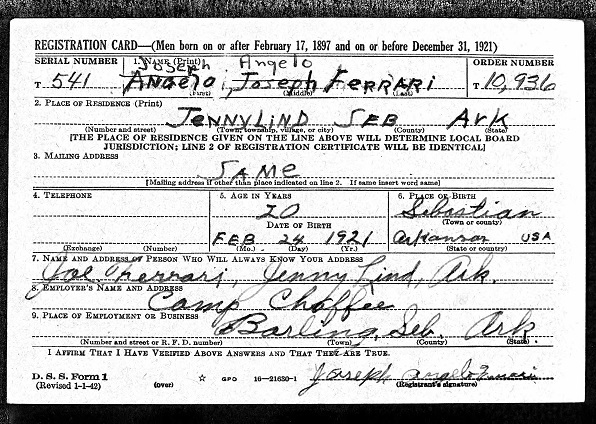 REGISTRATION CARD—(Men born on or after February 17, 1897 and on or before December 31, 1921)
SERIAL NUMBER 1. NAME (Print) ORDER NUMBER
Joseph Angelo
T 541 Angelo Joseph Ferrari T 10,936
(First) (Middle) (Last)
2. PLACE OF RESIDENCE (Print)
JENNYLIND SEB Ark
(Number and street) (Town, township, village, or city) (County) (State)
[THE PLACE OF RESIDENCE GIVEN ON THE LINE ABOVE WILL DETERMINE LOCAL BOARD
JURISDICTION; LINE 2 OF REGISTRATION CERTIFICATE WILL BE IDENTICAL]
3. MAILING ADDRESS
SAME
[Mailing address if other than place indicated on line 2. If same insert word same]
4. TELEPHONE 5. AGE IN YEARS 6. PLACE OF BIRTH
20 Sebastian
DATE OF BIRTH (Town or county)
FEB 24 1921 Arkansas USA
(Exchange) (Number) (Mo.) (Day) (Yr.) (State or country)
7. NAME AND ADDRESS OF PERSON WHO WILL ALWAYS KNOW YOUR ADDRESS
Joe Ferrari, Jenny Lind, Ark.
8. EMPLOYER'S NAME AND ADDRESS
Camp Chaffee
9. PLACE OF EMPLOYMENT OR BUSINESS
Barling, Seb. Ark.
(Number and street or R. F. D. number) (Town) (County) (State)
I AFFIRM THAT I HAVE VERIFIED ABOVE ANSWERS AND THAT THEY ARE TRUE.
D. S. S. Form 1
(Revised 1-1-42) (over) ☆ GPO 16—21630-1 Joseph Angelo Ferrari
(Registrant's signature)